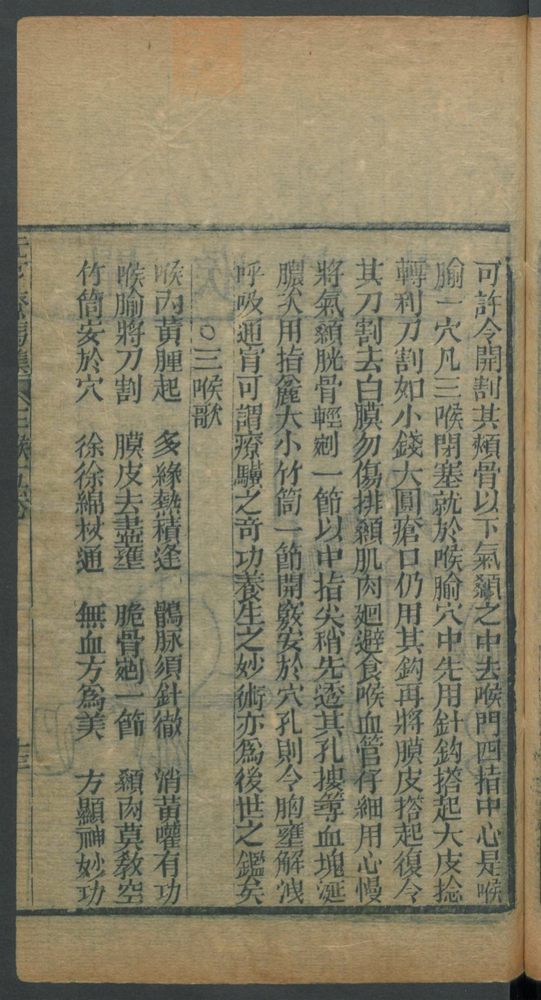 可許令開割其頰骨以下氣顙之中去喉門四指中心是喉
腧一穴凡三喉閉塞就於喉腧穴中先用針鈎搭起大皮捻
轉利刀割如小錢大圓瘡口仍用其鈎再將膜皮搭起復令
其刀割去白膜勿傷排顙肌肉廻避食喉血管仔細用心慢
將氣顙胱骨輕剜一節以中指尖稍先透其孔摟等血塊涎
膿次用指麄大小竹筒一節開竅安於穴孔則令胸壅解洩
呼吸通肓可謂療驥之奇功養生之妙術亦爲後世之鑑矣
○三喉歌
喉內黃腫起 多緣熱積逢 鶻脉須針徹 消黃嚾有功
喉腧將刀割 膜皮去盡壅 脆骨剜一節 顙肉莫敎空
竹筒安於穴 徐徐綿杖通 無血方爲美 方顯神妙功
元亨療馬集